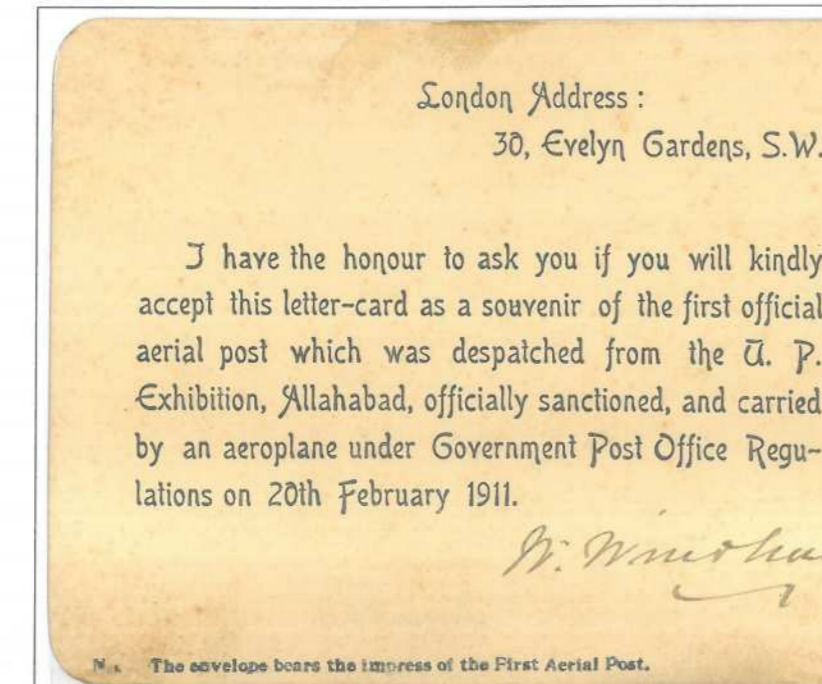 London Address :
30, Evelyn Gardens, S.W.
I have the honour to ask you if you will kindly
accept this letter-card as a souvenir of the first official
aerial post which was despatched from the U. P.
Exhibition, Allahabad, officially sanctioned, and carried
by an aeroplane under Government Post Office Regu-
lations on 20th February 1911.
W.
The envelope bears the impress of the First Aerial Post.